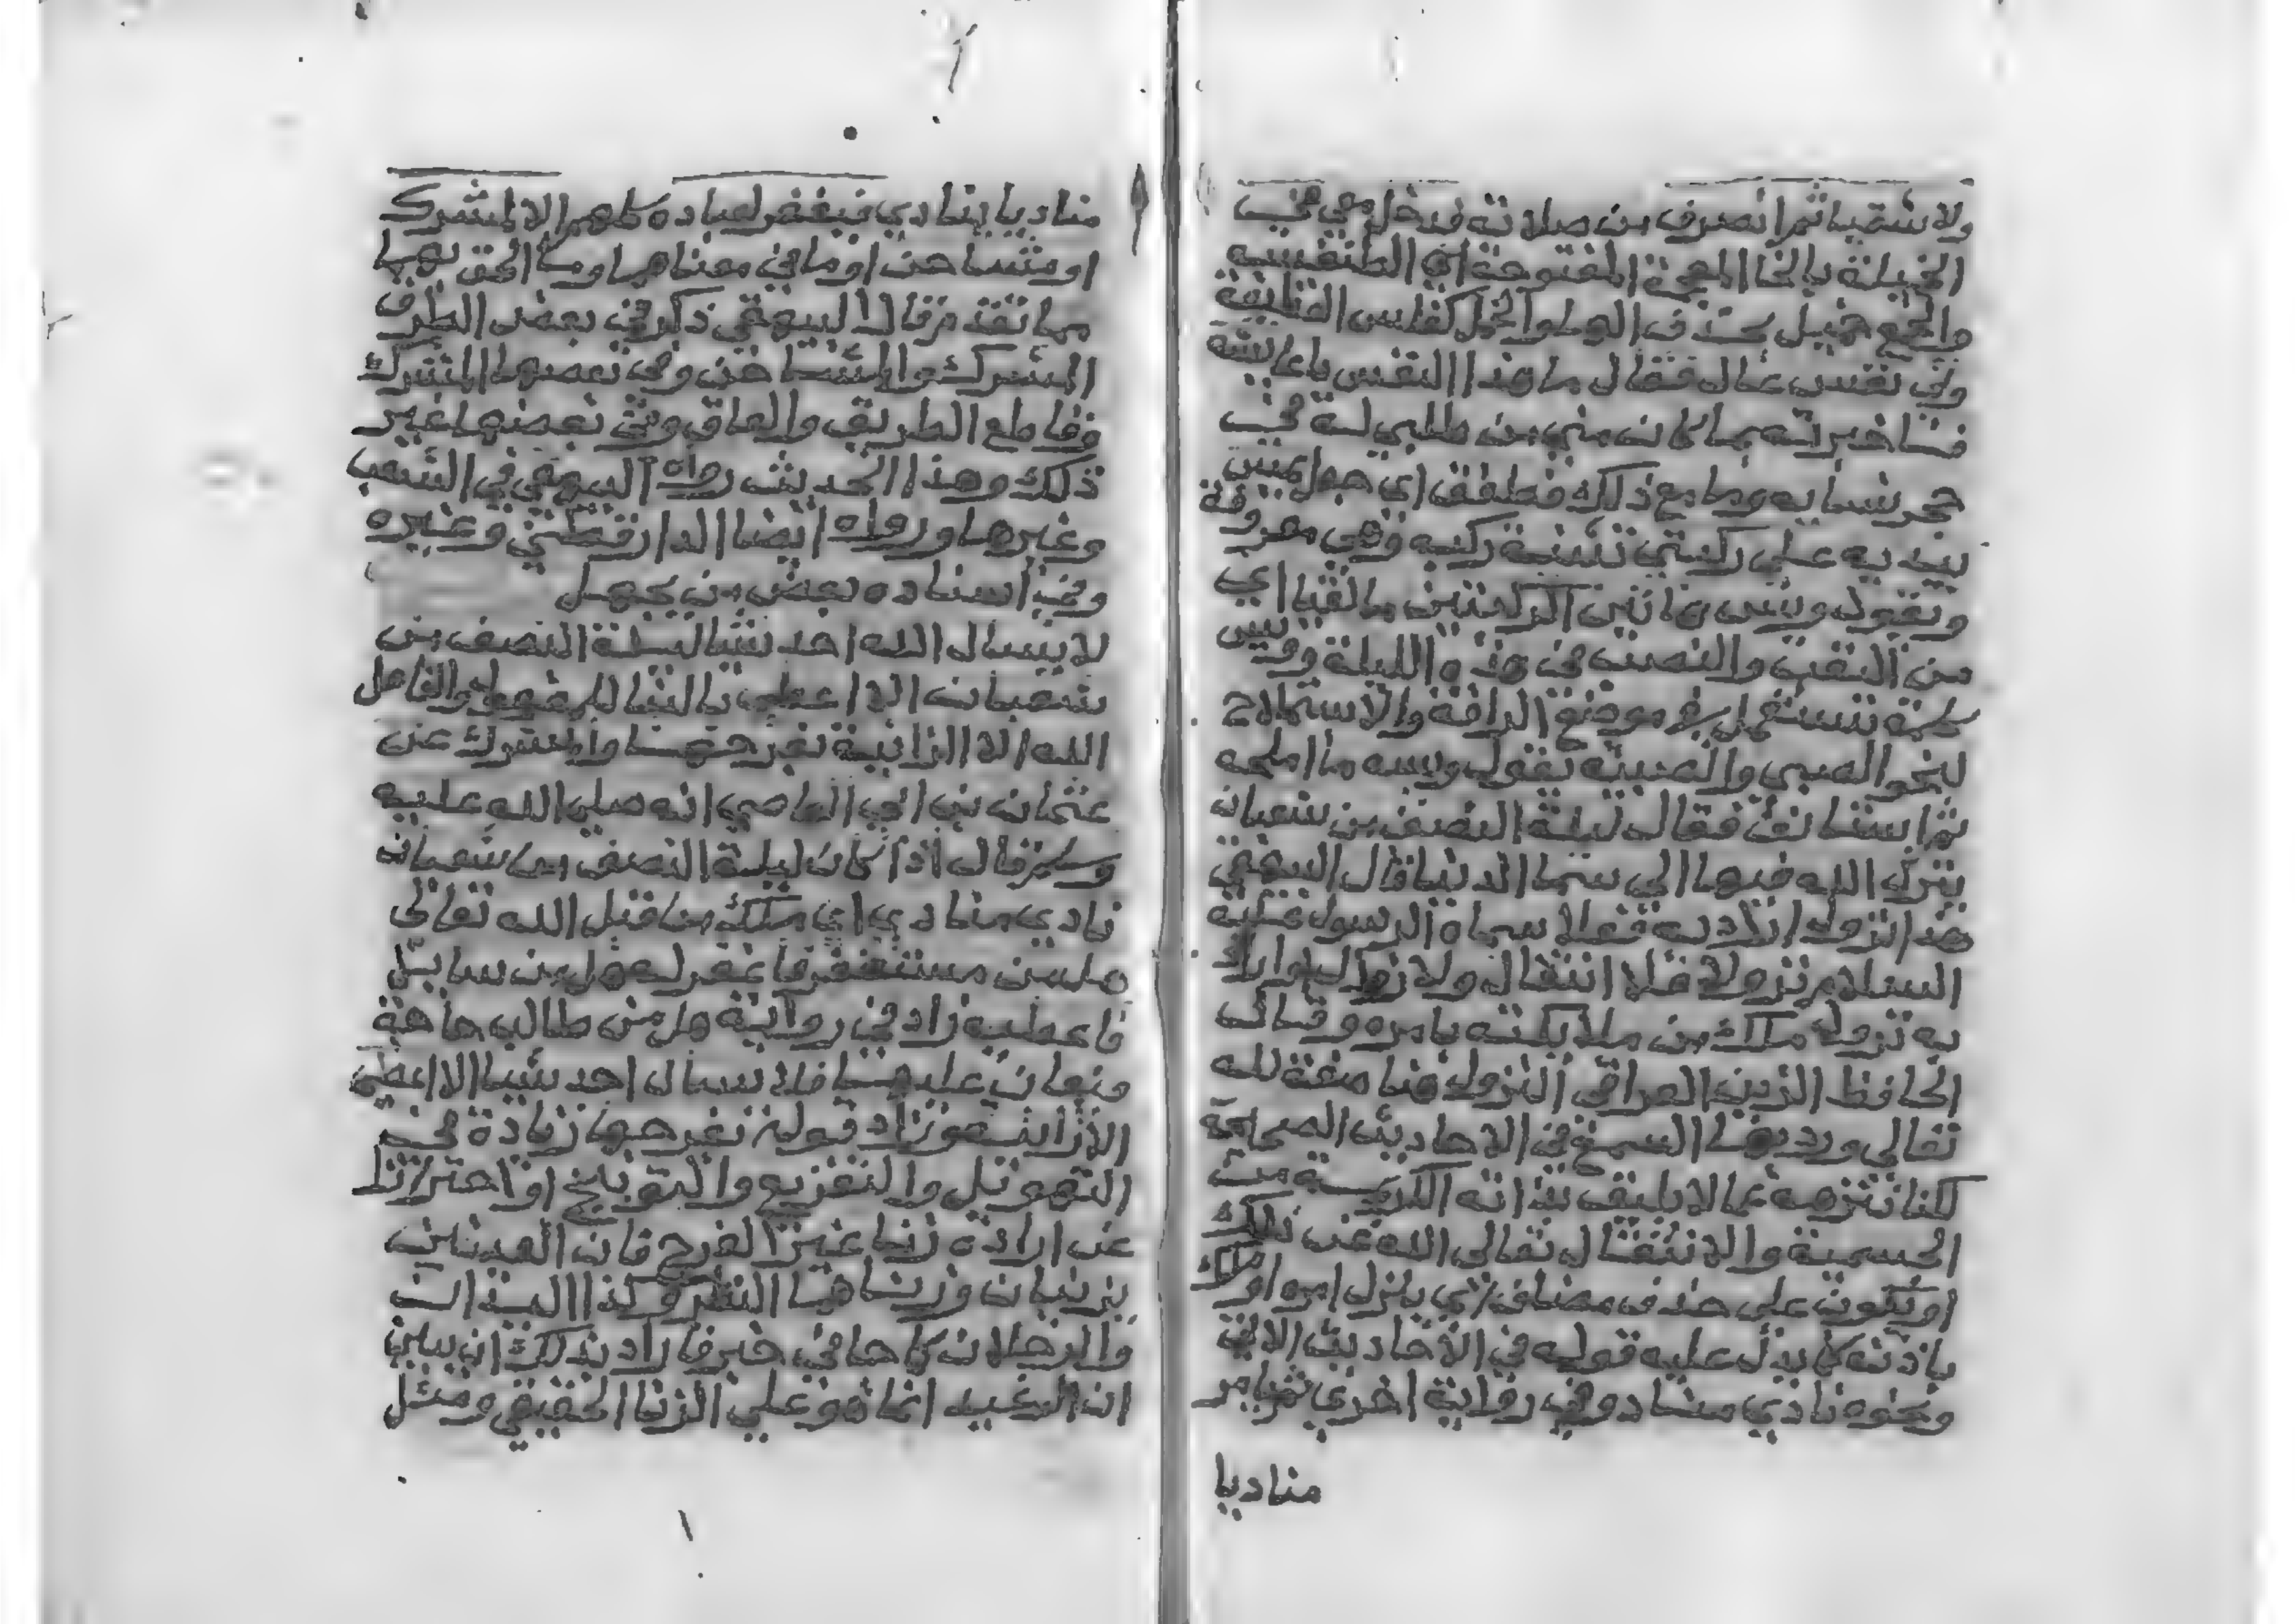 ولا شقيا ثم انصرف من صلاته فدخل معي في
الخميلة بالخا المعجمة المفتوحة اي القطيفة
والجمع خميل بحذف الها والخمل كفلس القطيفة
ولي نفس عال فقال ما هذا النفس يا عائشة
فاخبرته بما كان مني من طلبي له في
حجر نسايه وما مع ذلك فطفق اي جعل يمس
بيديه علي ركبتي تثنية ركبة وهي معروفة
ويقول ويس هاتين الركبتين ما لقيتا اي
من التعب والنصب في هذه الليلة وويس
كلمة تستعمل في موضع الرافة والاستملاح
لنحو الصبي والصبية تقول ويسه ما املحه
ثم استانف فقال ليلة النصف من شعبان
ينزل الله فيها الي سما الدنيا قال البيهقي
هذا النزول اراد به فعلا سماه الرسول عليه
السلام نزولا فلا انتقال ولا زوال او اراد
به نزول ملك من ملايكته بامره وقال
الحافظ الزين العراقي النزول هنا صفة لله
تعالي ورد بها السمع في الاحاديث الصحيحة
لكنا ننزهه عما لا يليق بذاته الكريمة من
الجسمية والانتقال تعالي الله عن ذلك
او يكون علي حذف مضاف اي ينزل امره او ملك
باذنه كما يدل عليه قوله في الاحاديث الاتية
ونحوه نادي مناد وفي رواية اخري ثم يامر
مناديا
مناديا ينادي فيغفر لعباده كلهم الا لمشرك
او مشاحن او ما في معناهما وما الحق بهما
مما تقدم قال البيهقي ذكر في بعض الطرق
المشرك والمشاحن وفي بعضها المشرك
وقاطع الطريق والعاق وفي بعضها غير
ذلك وهذا الحديث رواه البيهقي في الشعب
وغيرها ورواه ايضا الدارقطني وغيره
وفي اسناده بعض من يجهل
لا يسال الله احد شيا ليلة النصف من
شعبان الا اعطي بالبنا للمفعول والفاعل
الله الا الزانية بفرجها والمشرك عن
عثمان بن ابي العاصي انه صلي الله عليه
وسلم قال اذا كان ليلة النصف من شعبان
نادي منادي اي ملك من قبل الله تعالي
هل من مستغفر فاغفر له هل من سايل
فاعطيه زاد في رواية هل من طالب حاجة
فيعان عليها فلا يسال احد شيا الا اعطي
الا زانية زاد قوله بفرجها زيادة في
التهويل والتفزيع والتوبيخ او احترازا
عن ارادة زنا غير الفرج فان العينين
يزنيان وزناهما النظر وكذا اليدان
والرجلان كما جا في خبر فاراد بذلك ان يبين
ان الوعيد انما هو علي الزنا الحقيقي ومثل